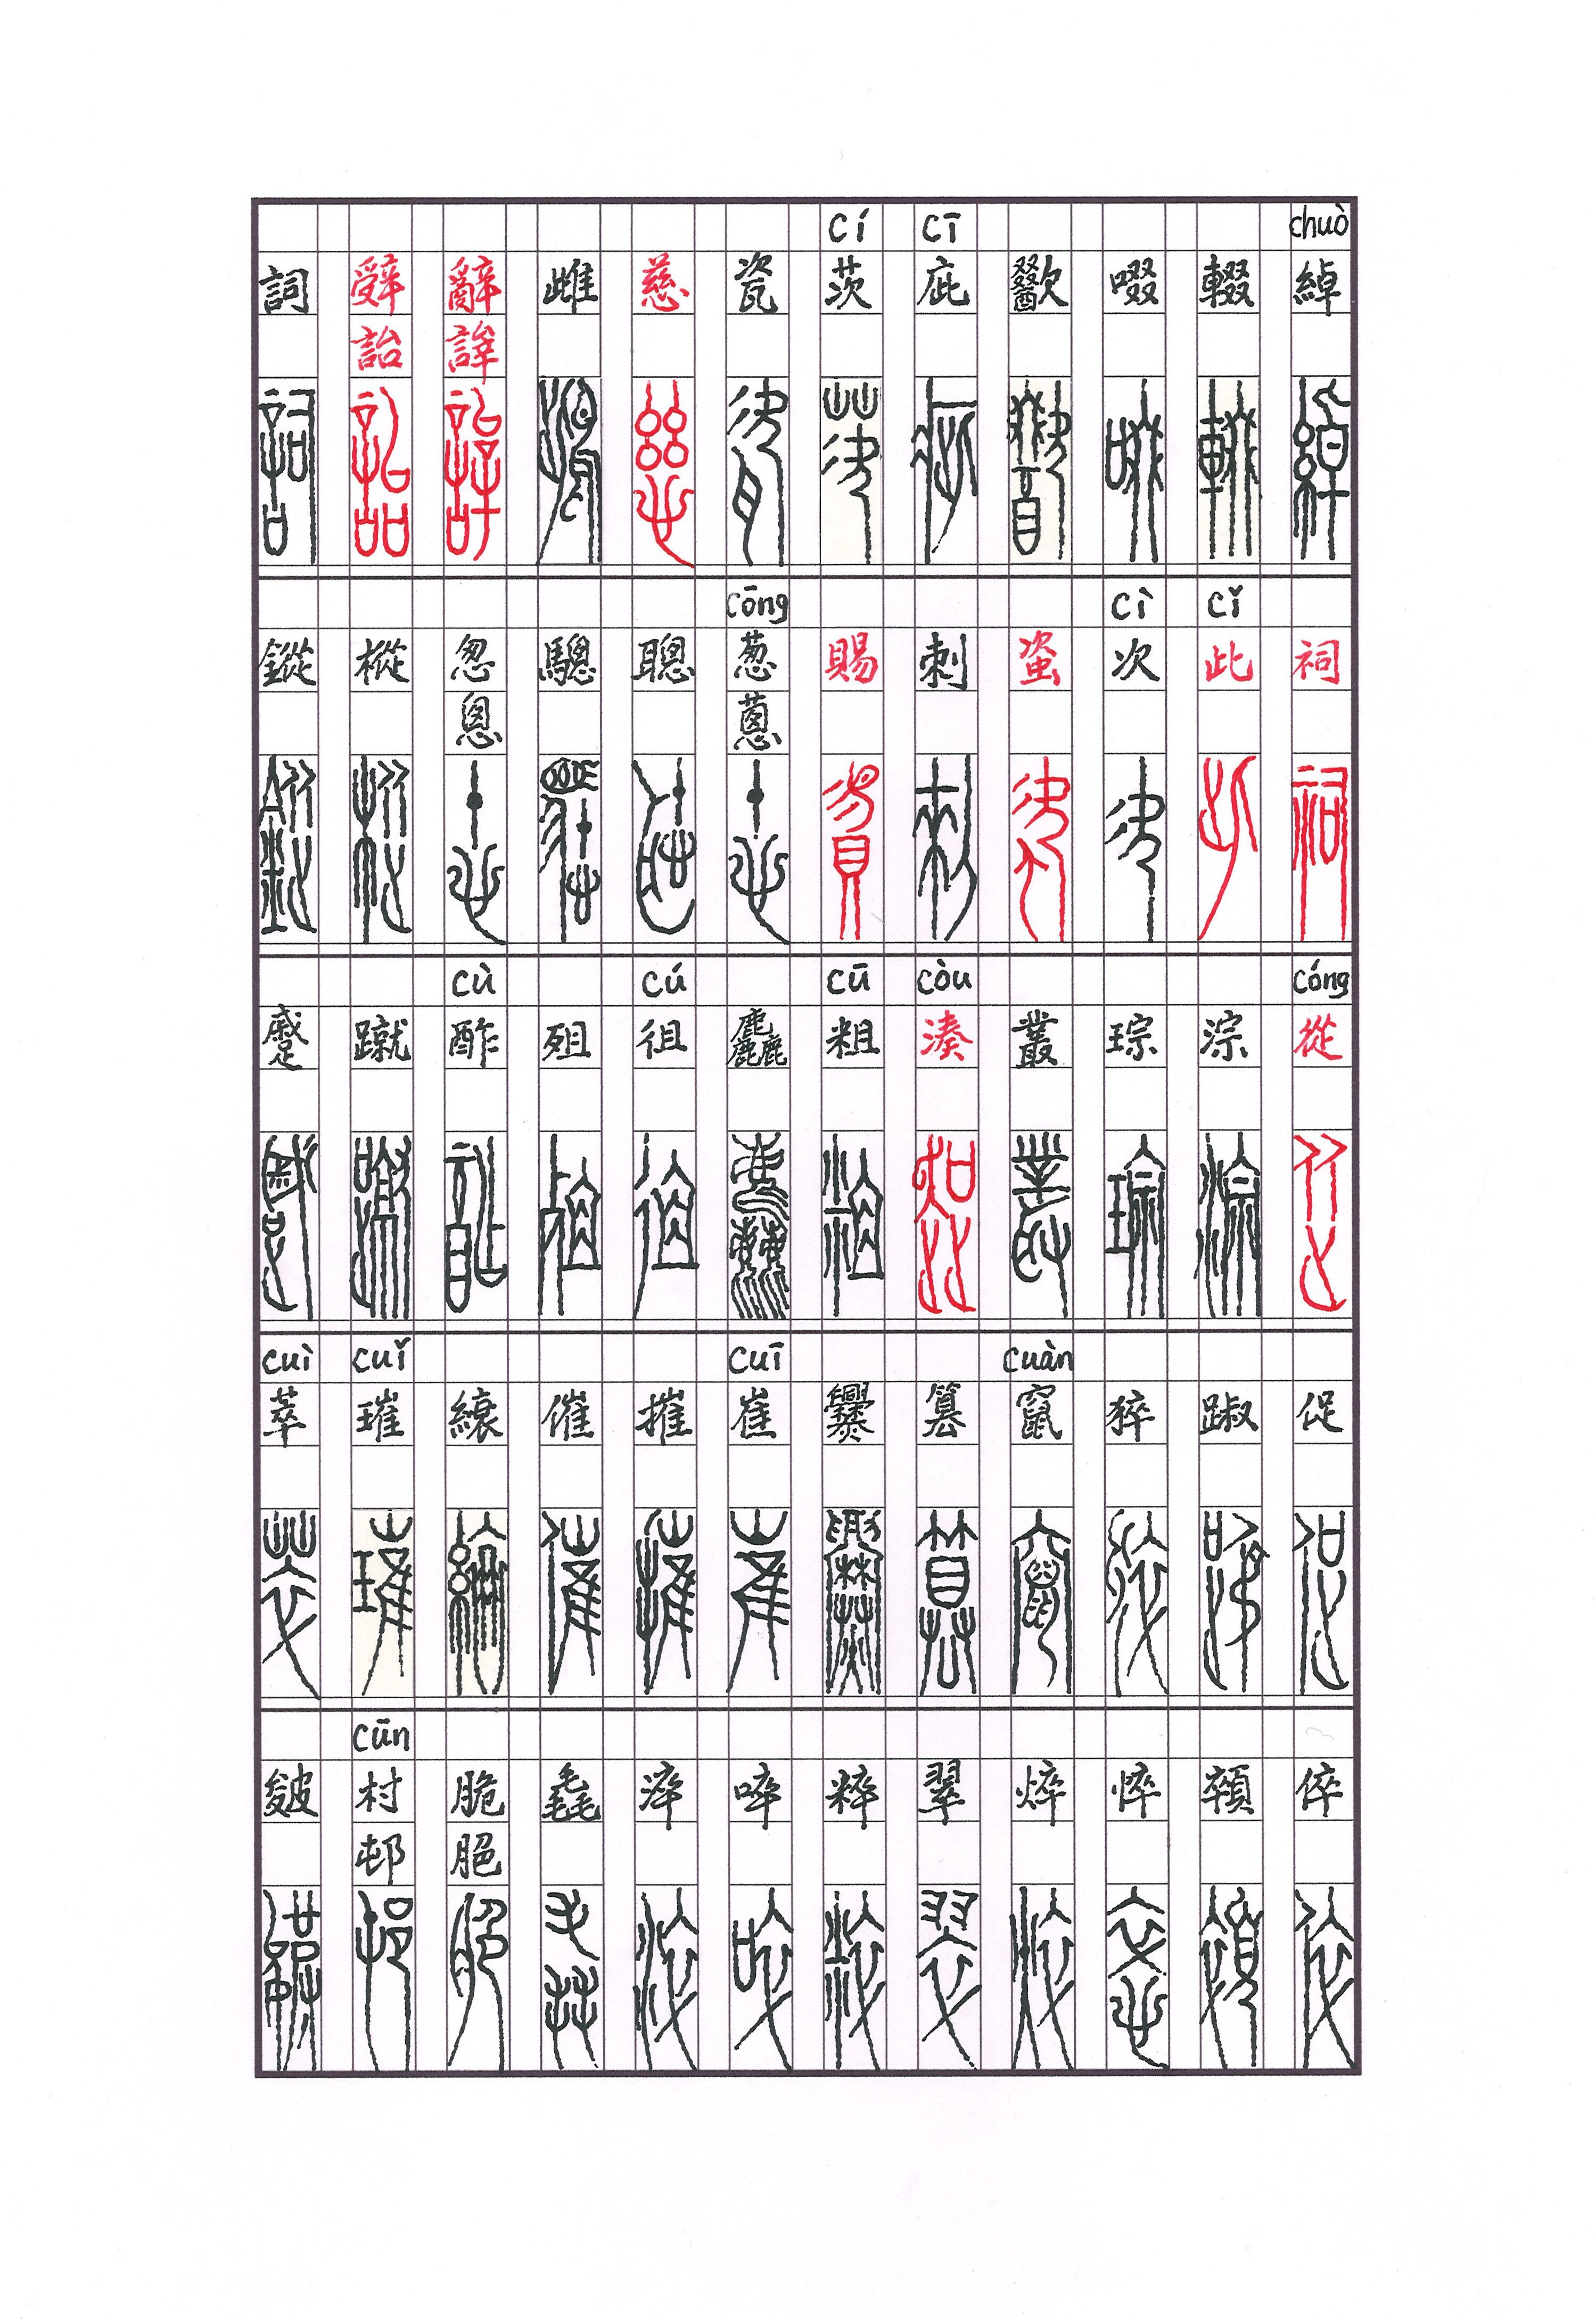 chuò cī cí
綽 輟 啜 歠 庛 茨 瓷 慈 雌 辭 辤 詞
詒
cǐ cì cōng
祠 此 次 刺 賜 葱 聰 驄 怱 樅 鏦
蔥 悤
cóng còu cū cú cù
從 淙 琮 叢 湊 粗 麤 徂 殂 酢 蹴 蹙
cuàn cuī cuǐ cuì
促 踧 猝 竄 篡 爨 崔 摧 催 縗 璀 萃
cūn
倅 顇 悴 焠 翠 粹 啐 淬 毳 脆 村 皴
脃 邨